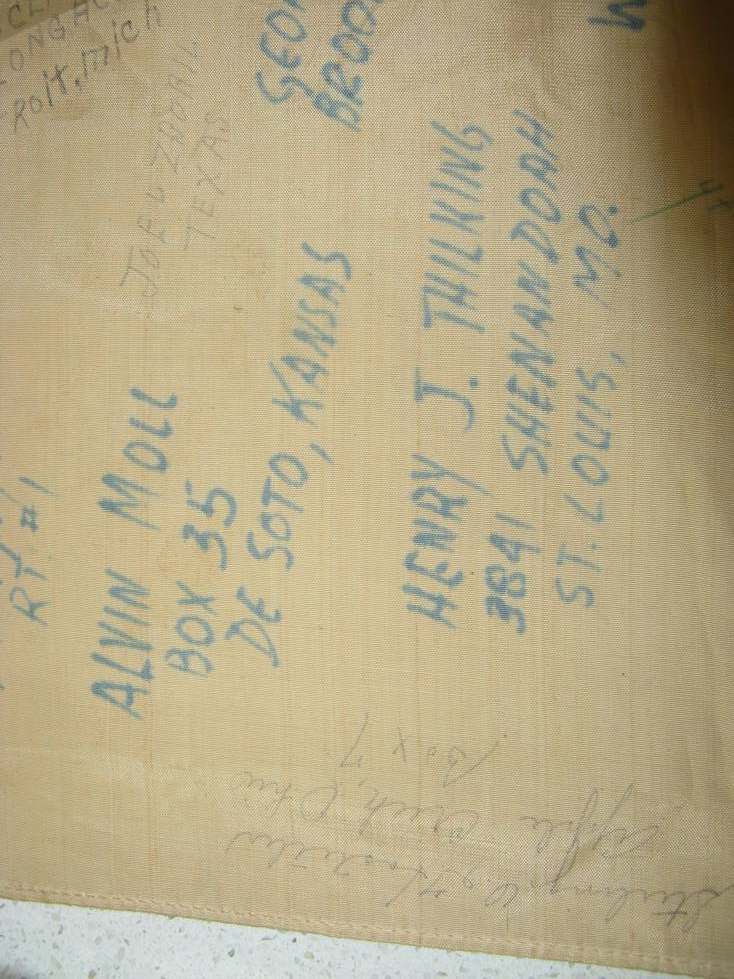 ROIT, MICH
GEO
BROO
W
JOE
TEXAS
RT #1
ALVIN MOLL
BOX 35
DE SOTO, KANSAS
HENRY J. THILKING
3841 SHENANDOAH
ST. LOUIS, MO.
Apple Creek, Ohio
Box 7